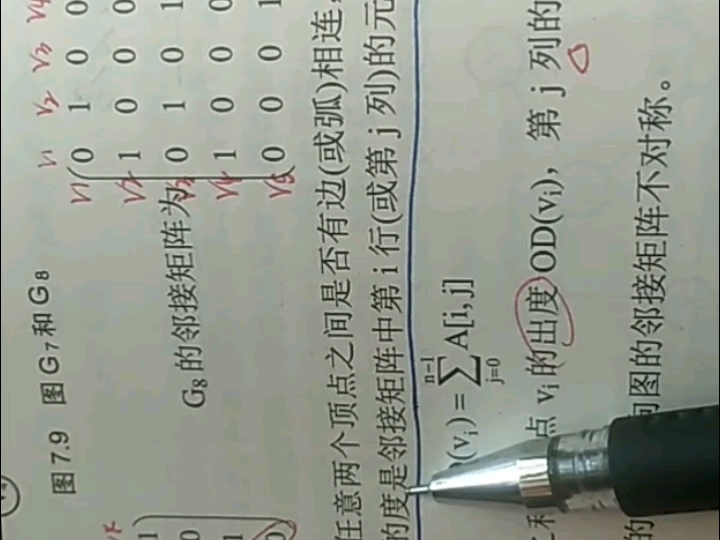 图 7.9 图 G₇ 和 G₈
V1 V2 V3 V4
V1 0 1 0 0
V2 1 0 0 0
G₈ 的邻接矩阵为 V3 0 1 0 1
V4 1 0 0 0
V5 0 0 0 1
任意两个顶点之间是否有边(或弧)相连,
的度是邻接矩阵中第 i 行(或第 j 列)的元
(vᵢ) = ∑_{j=0}^{n-1} A[i,j]
点 vᵢ 的出度 OD(vᵢ)，第 j 列的
向图的邻接矩阵不对称。